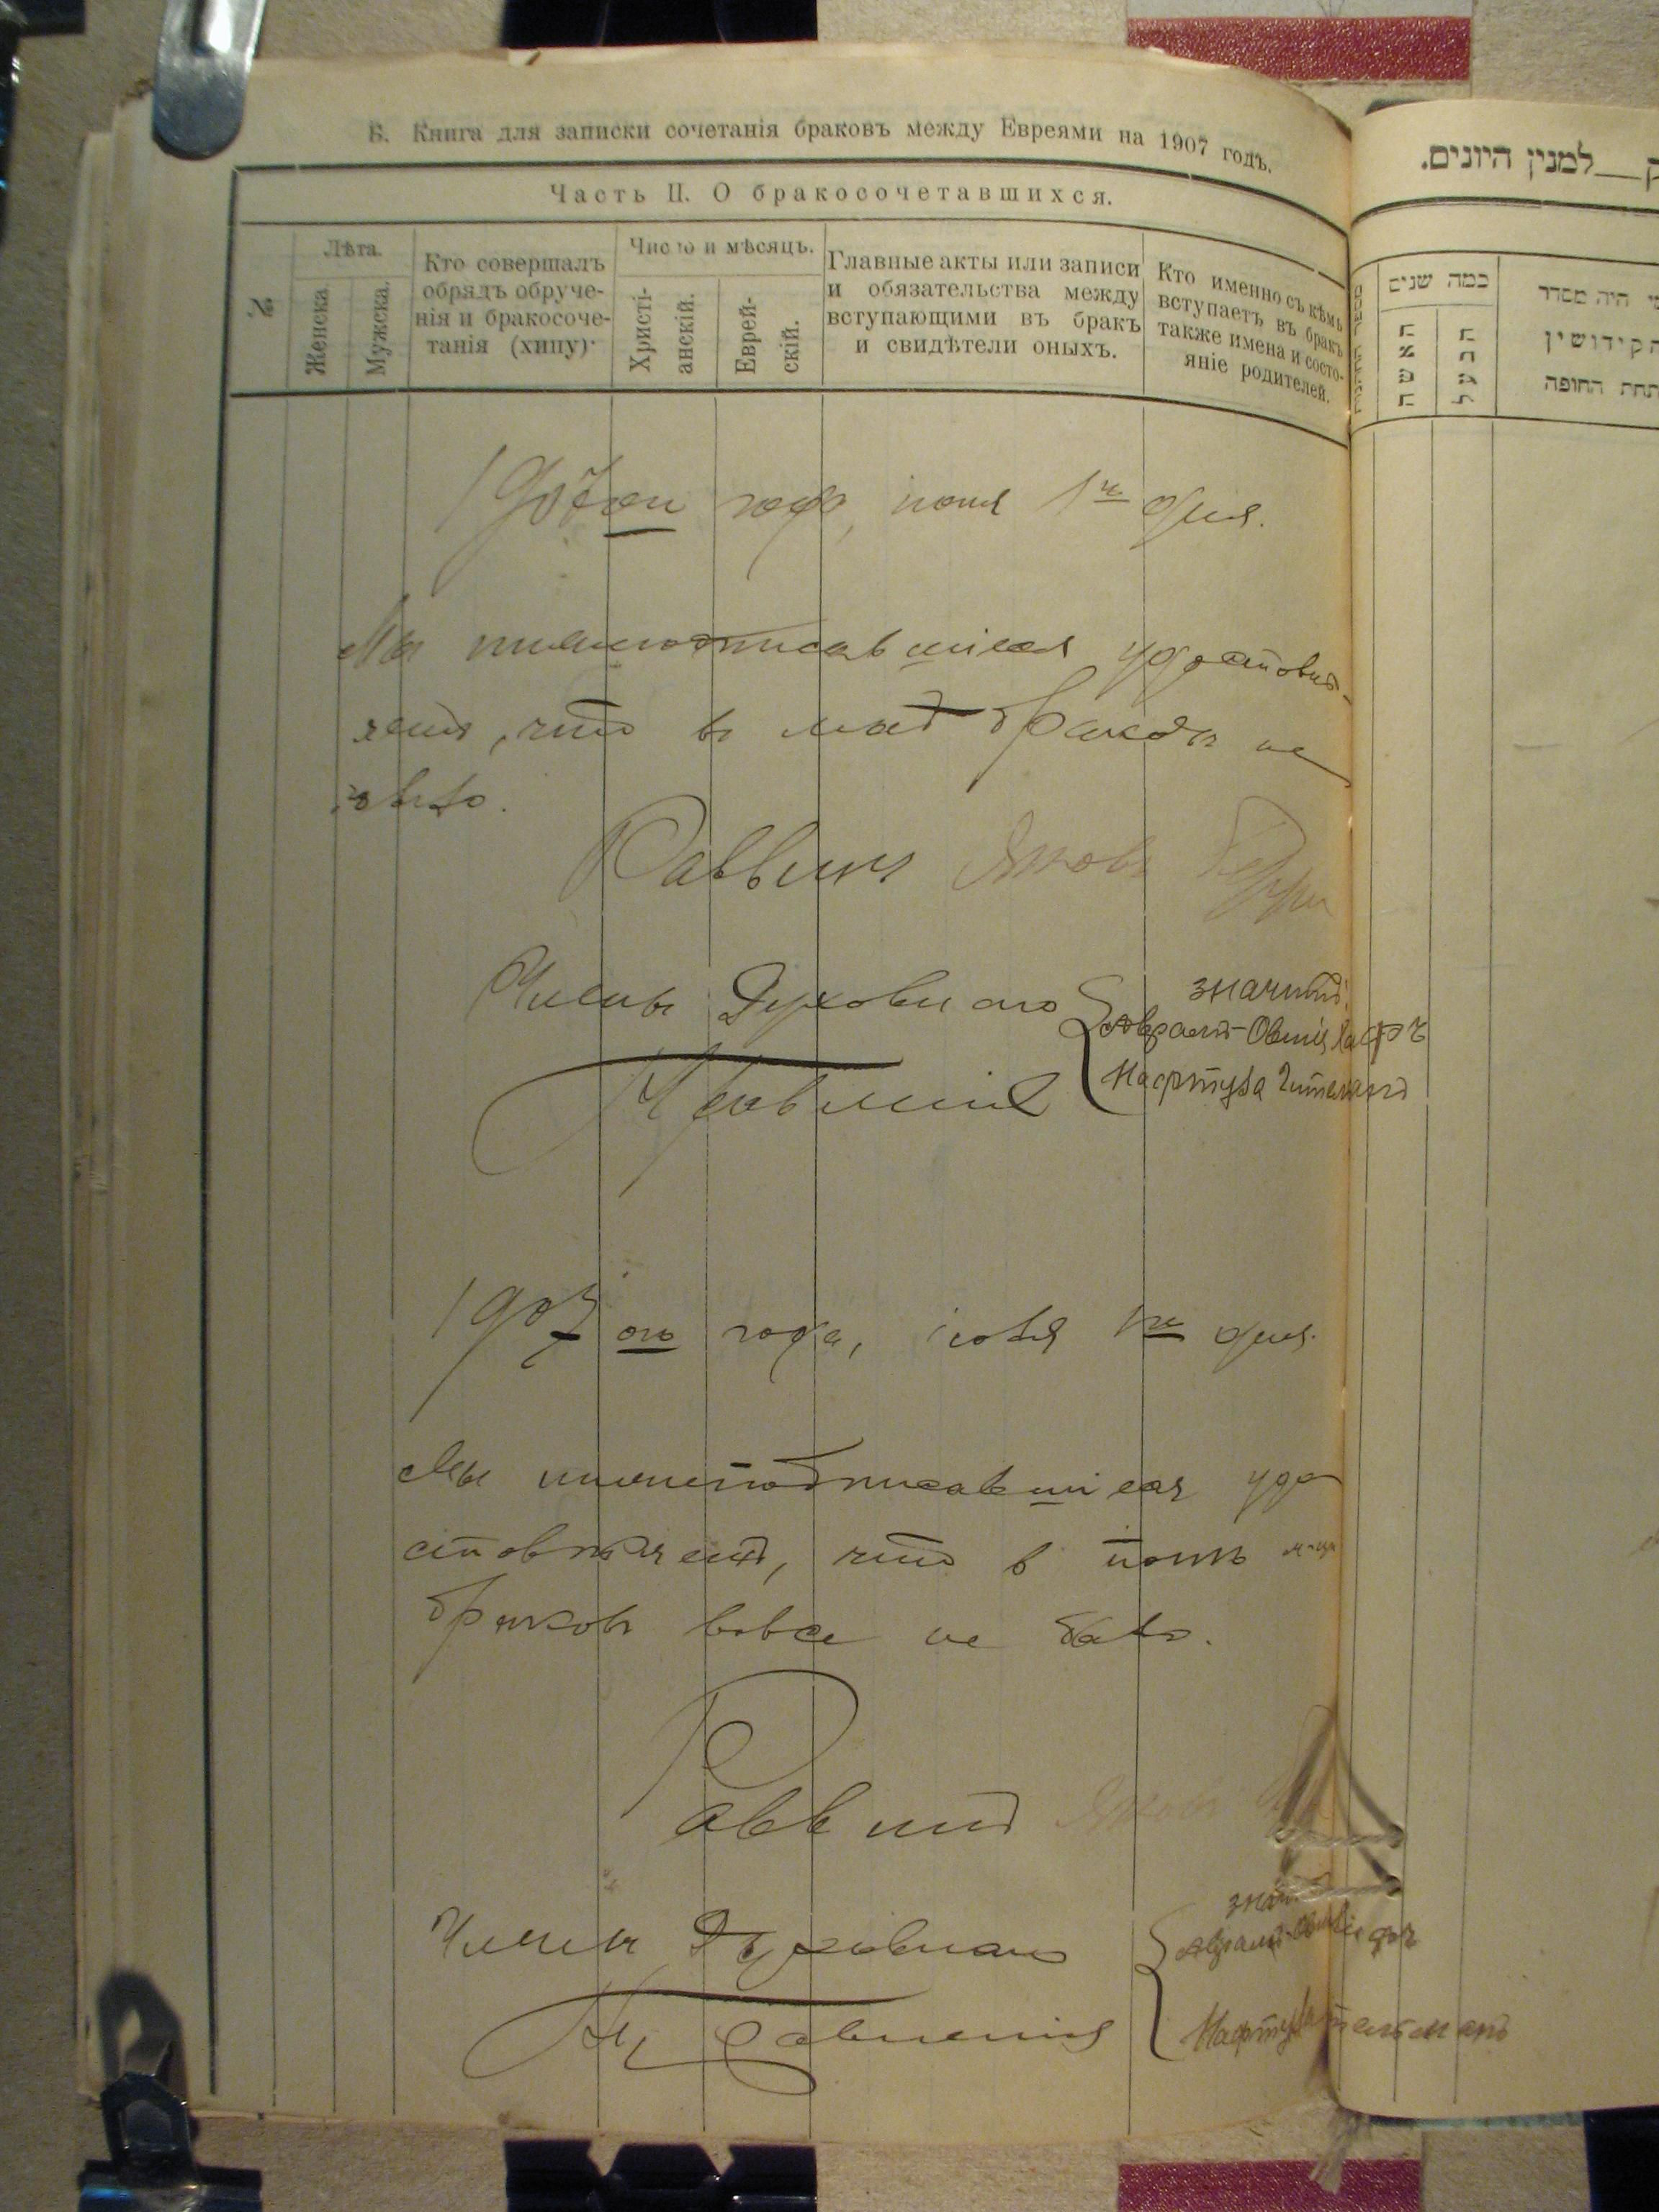 Б. Книга для записки сочетанія браковъ между Евреями на 1907 годъ.
Часть II. О бракосочетавшихся.
№
Лѣта.
Женска.
Мужска.
Кто совершалъ
обрядъ обруче-
нія и бракосоче-
танія (хипу)
Число и мѣсяцъ.
Христі-
анскій.
Еврей-
скій.
Главные акты или записи
и обязательства между
вступающими въ бракъ
и свидѣтели оныхъ.
Кто именно съ кѣмъ
вступаетъ въ бракъ
также имена и состо-
яніе родителей.
1907 го года, іюня 1го дня.
Мы нижеподписавшіеся удостовѣ-
ряемъ, что въ маѣ браковъ не
было.
Раввинъ Яковъ
Члены Духовного
Правленія
Абрамъ-Овшія
Нафтула Гительманъ
1907 ого года, іюля 1го дня.
Мы нижеподписавшіеся удо
стовѣряемъ, что в іюнѣ м-цѣ
браковъ вовсе не было.
Раввинъ Яковъ
Члены Духовнаго
Правленія
Абрамъ-Овшія
Нафтула Гительманъ
למנין היונים.
כמה שנים
האשה
הבעל
היה מסדר
הקידושין
תחת החופה